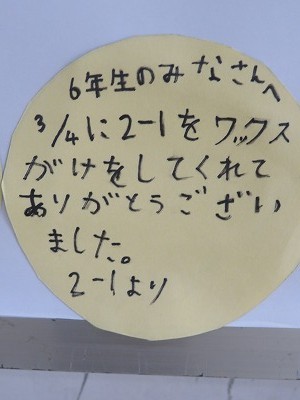 6年生のみなさんへ
3/4に2-1をワックス
がけをしてくれて
ありがとうござい
ました。
2-1より